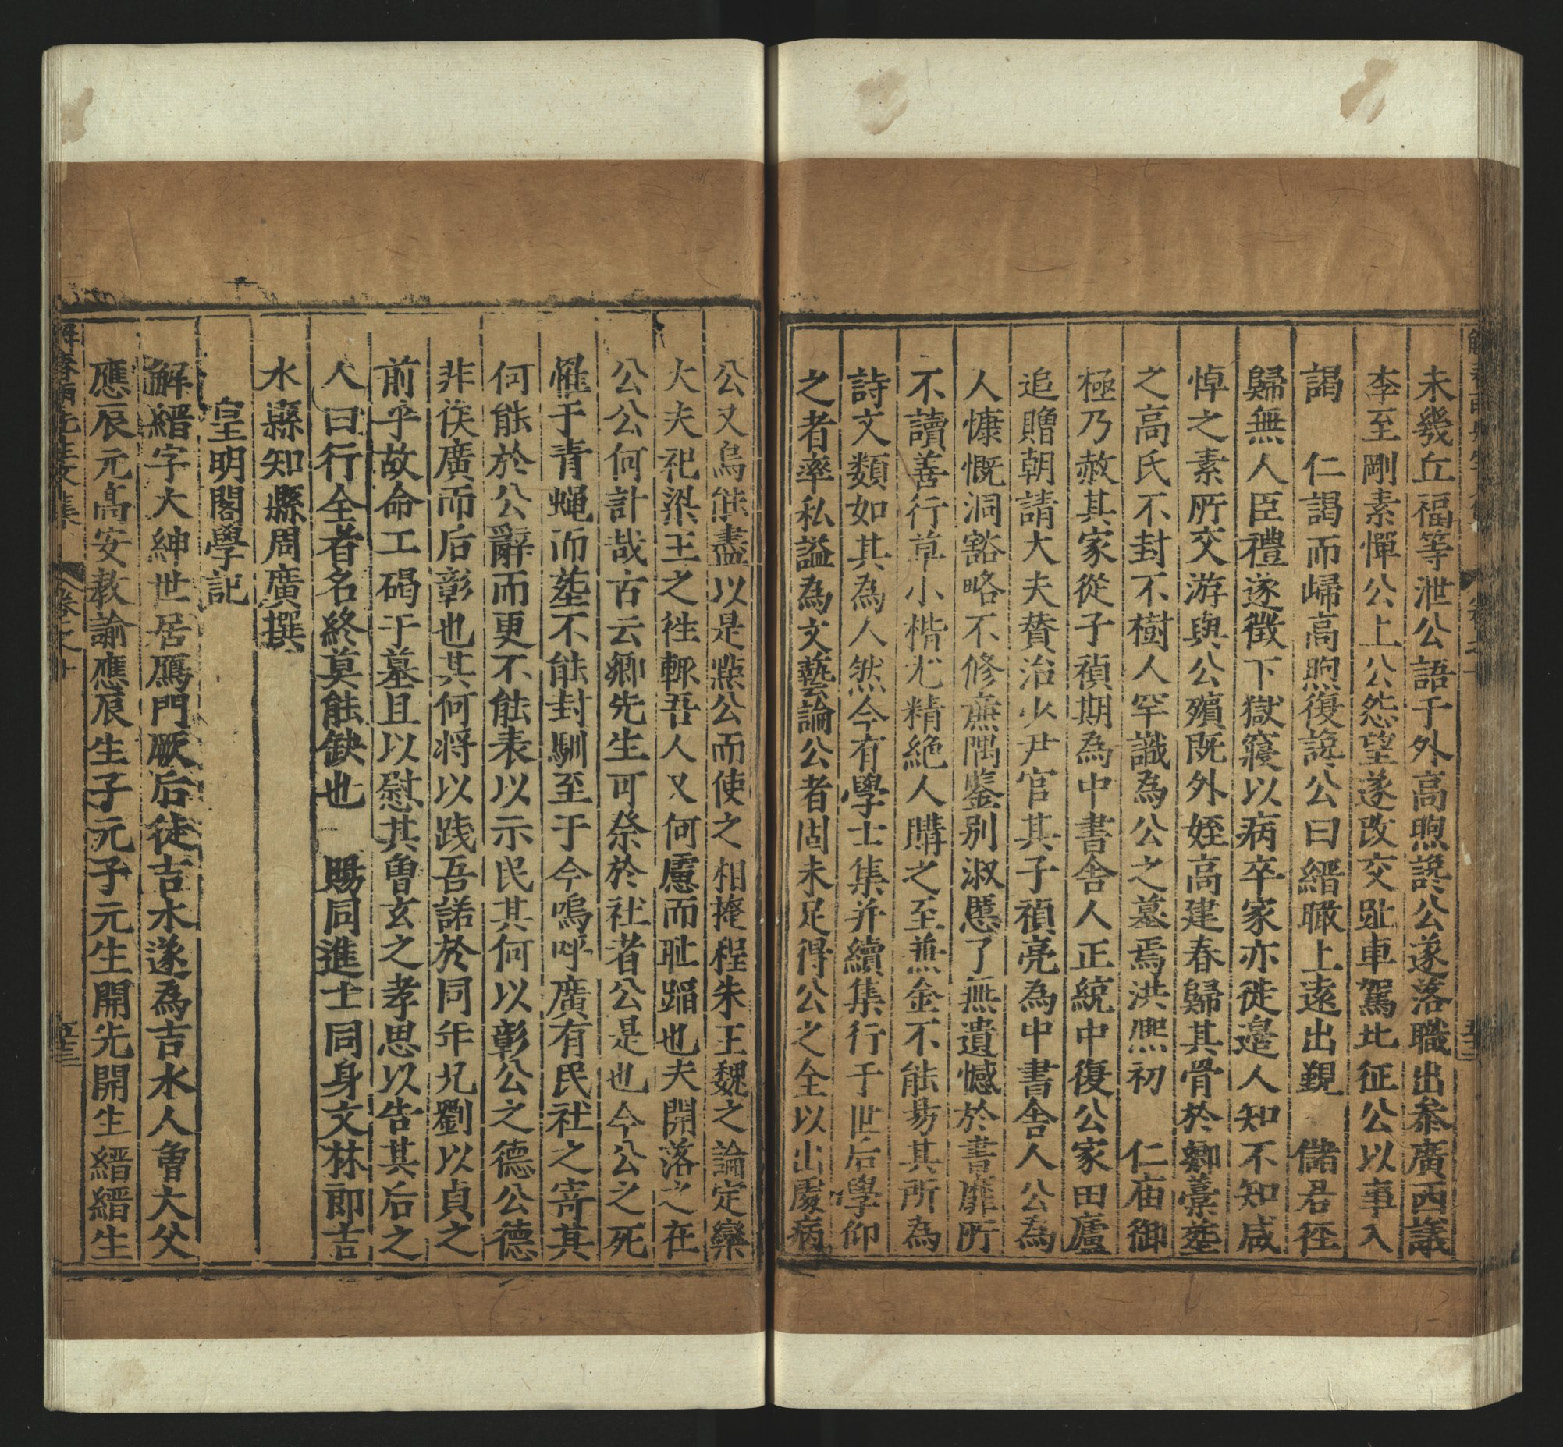 未幾丘福等泄公語于外高煦譖公遂落職出叅廣西議
李至剛素憚公上公怨望遂改交趾車駕北征公以事入
謁　仁謁而歸高煦復譖公曰縉瞰上遠出覲　儲君徑
歸無人臣禮遂徵下獄寢以病卒家亦徙邉人知不知咸
悼之素所交游與公殯既外姪高建春歸其骨於鄉藁塟
之高氏不封不樹人罕識為公之墓焉洪熙初　仁庙御
極乃赦其家從子禎期為中書舍人正統中復公家田廬
追贈朝請大夫賛治少尹官其子禎亮為中書舍人公為
人慷慨洞豁略不修亷隅鉴别淑慝了無遺憾於書靡所
不讀善行草小楷尤精絶人購之至兼金不能易其所為
詩文類如其為人然今有學士集并續集行于世后學仰
之者率私謚為文藝論公者固未足得公之全以出處病
公又烏能盡以是燕公而使之相掩程朱王魏之論定欒
大夫祀梁王之徃輙吾人又何慮而耻蹈也夫開落之在
公公何計哉古云鄉先生可祭於社者公是也今公之死
罹于青蝇而塟不能封馴至于今嗚呼廣有民社之寄其
何能於公辭而更不能表以示民其何以彰公之德公德
非俟廣而后彰也其何将以践吾諾於同年兄劉以貞之
前乎故命工碣于墓且以慰其曾玄之孝思以告其后之
人曰行全者名終莫能缺也　賜同進士同身文林郎吉
水縣知縣周廣撰
皇明閣學記
解縉字大紳世居鴈門厥后徙吉水遂為吉水人曾大父
應辰元高安教諭應辰生子元子元生開先開生縉縉生